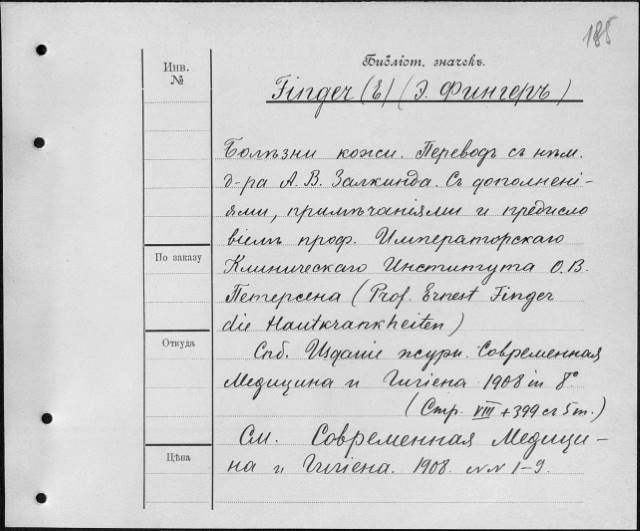 185
Библіот. значекъ.
Инв.
№
Finger (E) (Э. Фингеръ)
Болѣзни кожи. Переводъ съ нѣм.
д-ра А. В. Залкинда. Съ дополнені-
ями, примѣчаніями и предисло
віемъ проф. Императорскаго
По заказу
Клиническаго Института О. В.
Петерсена (Prof. Ernest Finger
die Hautkrankheiten)
Откуда
Спб. Изданіе журн. Современная
Медицина и Гигіена 1908 in 8°
(Стр. VIII + 399 съ 5 т.)
См. Современная Медици-
Цѣна
на и Гигіена. 1908. NN 1-9.